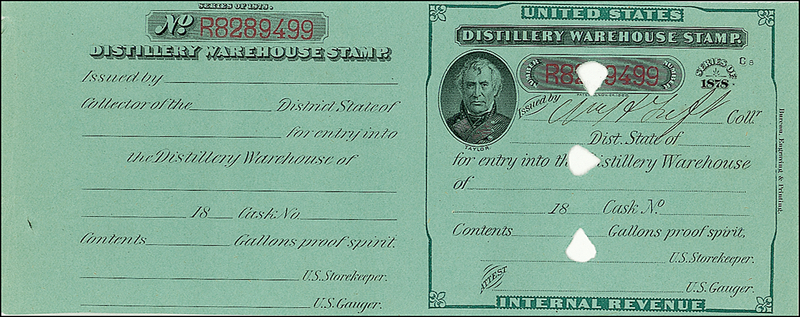 SERIES OF 1878.
No R8289499
DISTILLERY WAREHOUSE STAMP.
Issued by
Collector of the District State of
for entry into
the Distillery Warehouse of
18 Cask No.
Contents Gallons proof spirit,
U.S. Storekeeper.
U.S. Gauger.
UNITED STATES
DISTILLERY WAREHOUSE STAMP.
R8289499
SERIES OF 1878
C 8
TAYLOR.
Issued by Coll'r
Dist. State of
for entry into the Distillery Warehouse
of
18 Cask No.
Contents Gallons proof spirit,
U.S. Storekeeper.
ATTEST
U.S. Gauger.
INTERNAL REVENUE
Bureau, Engraving & Printing.